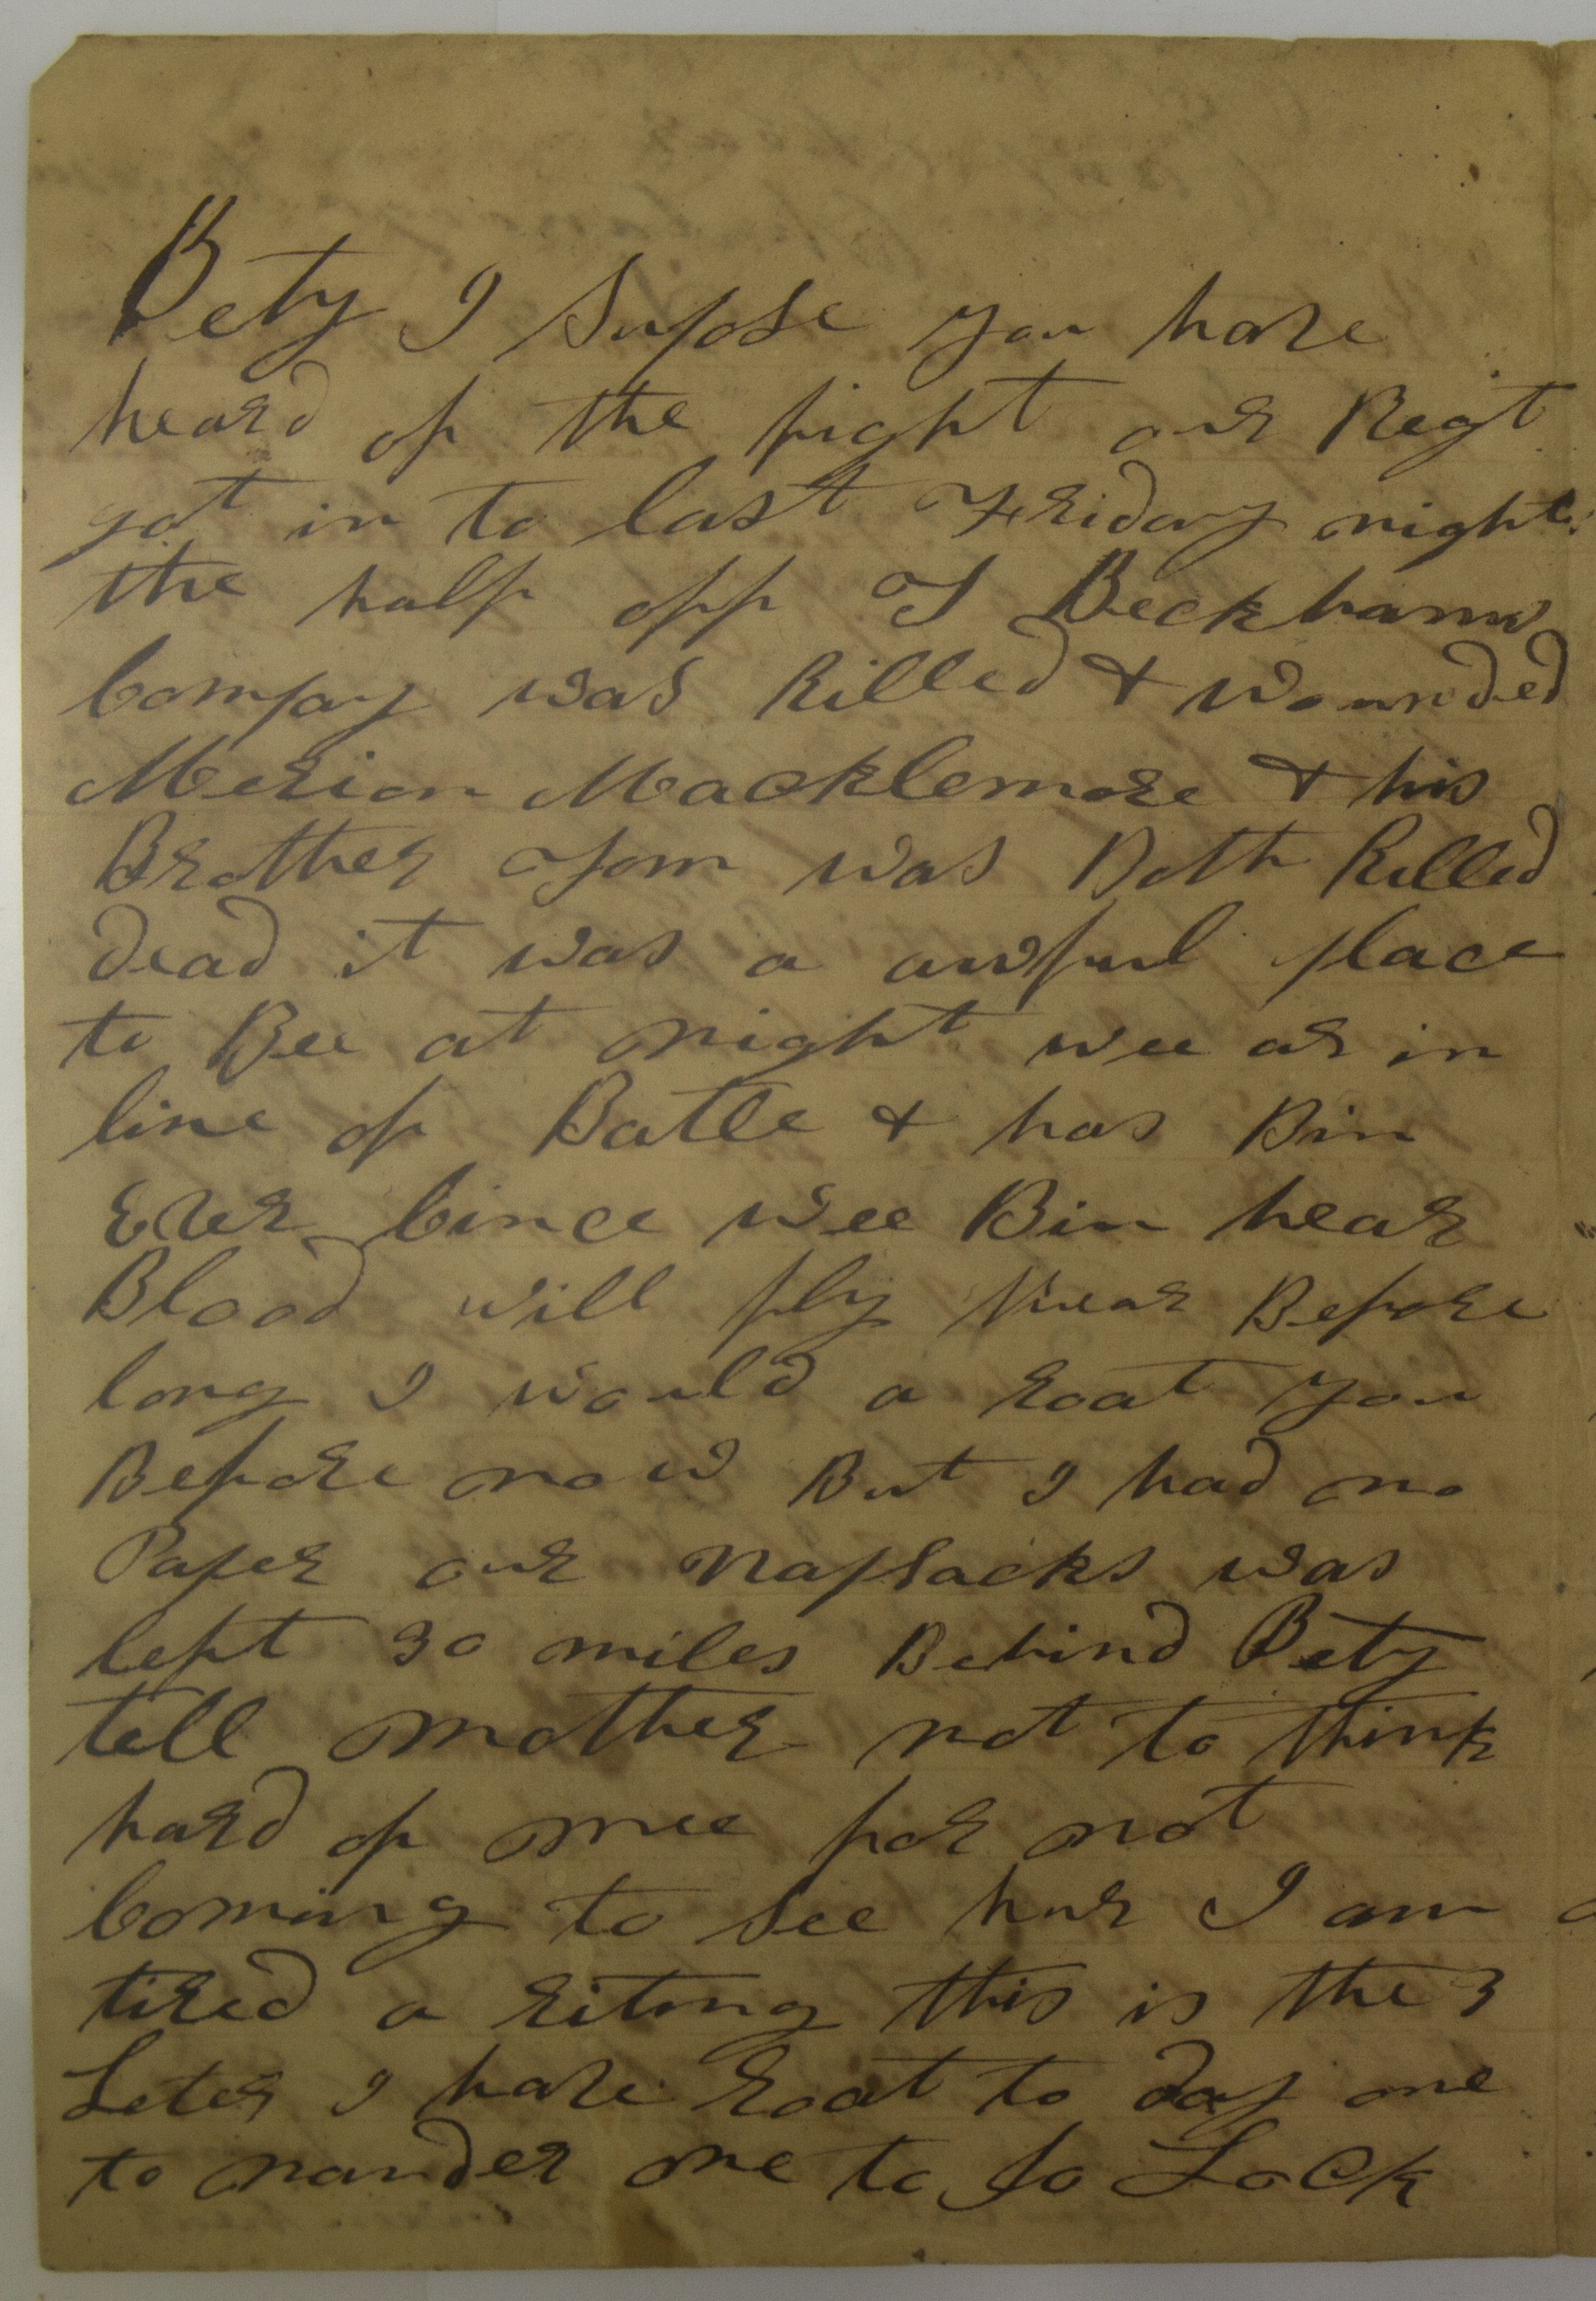 Bety I Supose you have
heard of the fight our Regt
got in to last Friday night
the half off T Beckhams
Compay was Killed + Wounded
Merion Macklemore + his
Brother Tom was Both Killed
dead it was a awful place
to Bee at night wee ar in
line of Batle + has Bin
Ever Cince wee Bin hear
Blood will fly hear Before
long I would a roat you
Before now But I had no
Paper our Napsacks was
left 30 miles Behind Bety
tell mother not to think
hard of mee for not
Coming to see hur I am
tired a riting this is the 3
Leter I have roat to day one
to nander one to Jo Lock